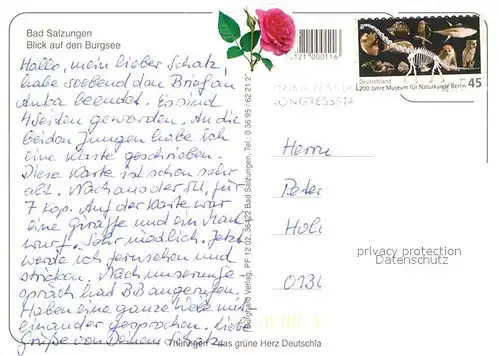 Bad Salzungen
Blick auf den Burgsee
Hallo, mein lieber Schatz,
habe soebend den Brief an
Anka beendet. Es sind
4 Seiten geworden. An die
beiden Jungen habe ich
eine Karte geschrieben.
Diese Karte ist schon sehr
alt. Noch aus der SU, für
7 Kop. Auf der Karte war
eine Giraffe und ein Maul
wurf. Sehr niedlich. Jetzt
werde ich fernsehen und
stricken. Nach unserem Ge-
spräch hat BB angerufen.
Haben eine ganze Weile mit
einander gesprochen. Liebe
Grüße von Deinem Schatz
Thüringen - das grüne Herz Deutschla
Burgland Verlag, PF 12 02, 36422 Bad Salzungen, Tel.: 0 36 95 / 62 21 2
0121 000116
Deutschland
200 Jahre Museum für Naturkunde Berlin
45
Herrn
Peter
Hol
0131
privacy protection
Datenschutz